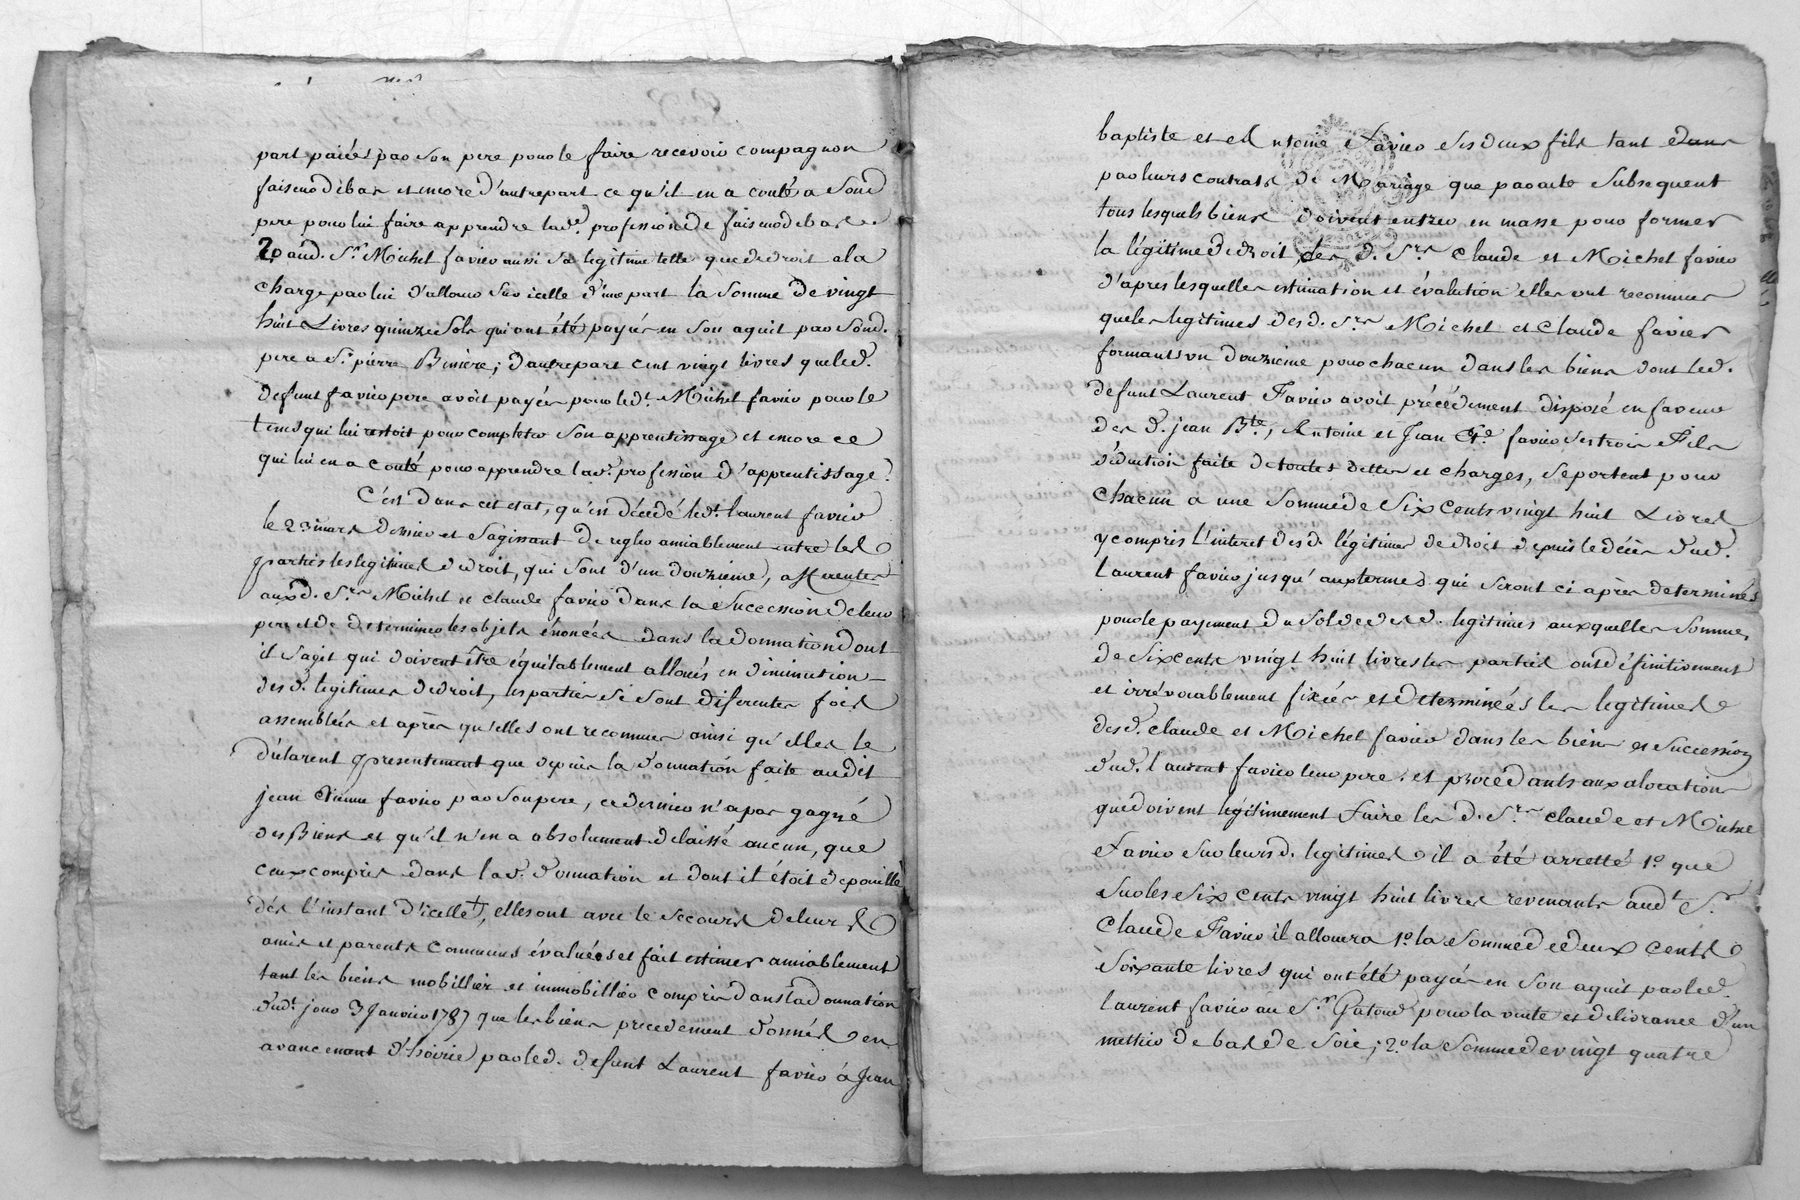 part paiée par son pere pour le faire recevoir compagnon
faiseur de bas et encore d'autre part ce qu'il en a couté a sond
pere pour lui faire apprendre lad. profession de faiseur de bas
2° aud. Sr. Michel favier aussi sa legitime telle que de droit a la
charge par lui d'allouer sur icelle d'une part la somme de vingt
huit Livres quinze Sols qui ont été payés en son aquit par sond.
pere a Sr. pierre ; d'autre part cent vingt livres que led.
defunt favier pere avoit payés pour led. Michel favier pour le
tems qui lui restoit pour completer son apprentissage et encore ce
qui lui en a couté pour apprendre lad. profession d'apprentissage.
C'est dans cet etat, qu'est décédé led. laurent favier
le 23 mars dernier et s'agissant de regler amiablement entre les
parties les legitimes de droit, qui sont d'un douzieme, afferentes
auxd. Srs. Michel et claude favier dans la succession de leur
pere et de determiner les objets énoncés dans la donnation dont
il s'agit qui doivent être équitablement alloués en diminution
desd. legitimes de droit, les parties se sont diferentes fois
assemblées et après qu'elles ont reconnues ainsi qu'elles le
déclarent presentement que depuis la donnation faite audit
jean Etienne favier par son pere, ce dernier n'a pas gagné
des Biens et qu'il n'en a absolument delaissé aucun, que
ceux compris dans lad. donnation et dont il étoit dépouillé
dès l'instant d'icelle, elles ont avec le secours de leurs
amis et parents communs évaluées et fait estimer amiablement
tant les biens mobillier et immobillier compris dans la donnation
dud. jour 3 Janvier 1787 que les biens precedement donnés en
avancement d'hoirie par led. defunt Laurent favier à Jean
baptiste et Antoine Favier ses deux fils tant dans
par leurs contrats de Mariage que par acte subsequent
tous lesquels biens doivent entrer en masse pour former
la légitime de droit des d. Srs. Claude et Michel favier
d'après lesquelles estimation et évalution elles ont reconnues
que les legitimes desd. Srs. Michel et Claude favier
formants un douzieme pour chacun dans les biens dont led.
defunt Laurent Favier avoit précédement disposé en faveur
des d. jean Bte., Antoine et Jean Et.e favier ses trois Fils
déduction faite de toutes dettes et charges, se portent pour
chacun a une somme de six cents vingt huit Livres
y compris l'interet desd. légitimes de droit depuis le décès dud.
laurent favier jusqu'aux termes qui seront ci après determinés
pour le payement du solde desd. legitimes auxquelles sommes
de six cents vingt huit livres les parties ont définitivement
et irrévocablement fixées et determinées les legitimes
desd. claude et Michel favier dans les biens et succession
dud. laurent favier leur pere : et procédants aux alocations
que doivent legitimement faire les d. Srs. claude et Michel
Favier sur leurs d. legitimes il a été arretté 1° que
sur les six cents vingt huit livres revenants aud. Sr.
Claude Favier il allouera 1° la somme de deux cents
soixante livres qui ont été payés en son aquit par led.
laurent favier au Sr. Gatoud pour la vente et delivrance d'un
mettier de bas de soie ; 2° la somme de vingt quatre